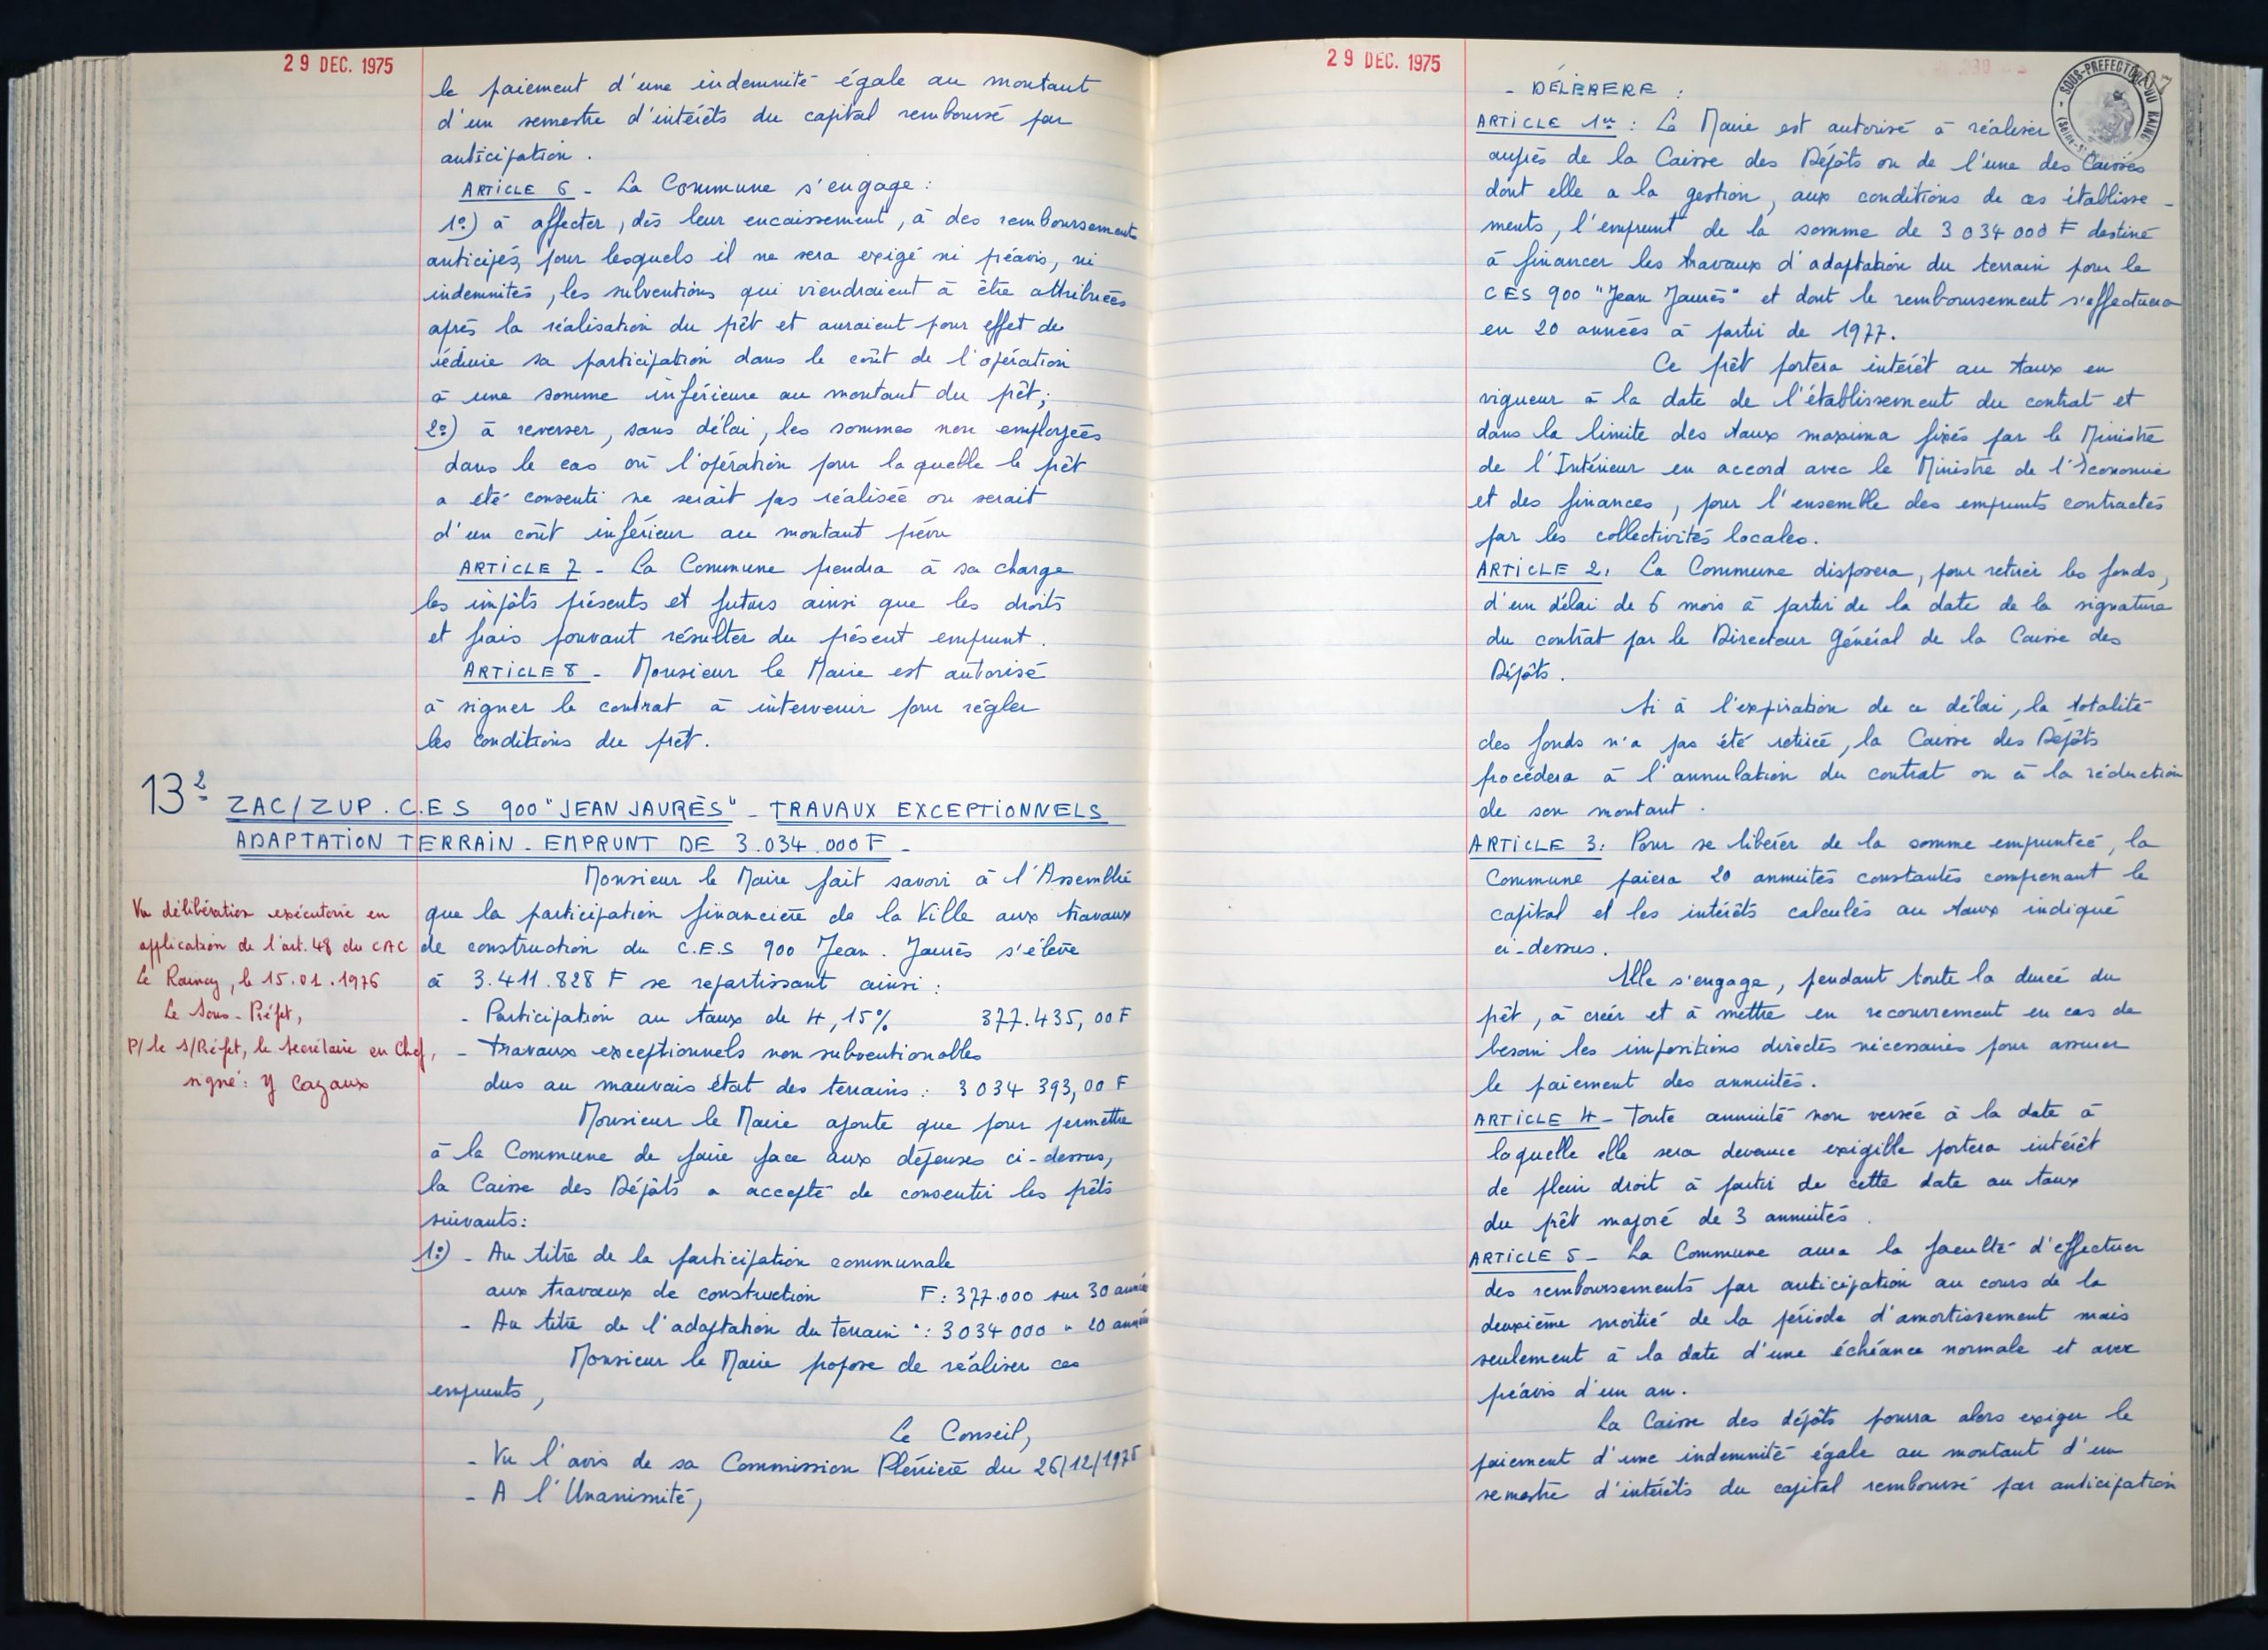 29 DEC. 1975
le paiement d'une indemnité égale au montant
d'un semestre d'intérêts du capital remboursé par
anticipation.
ARTICLE 6 - La Commune s'engage :
1°) à affecter, dès leur encaissement, à des remboursements
anticipés, pour lesquels il ne sera exigé ni préavis, ni
indemnités, les subventions qui viendraient à être attribuées
après la réalisation du prêt et auraient pour effet de
réduire sa participation dans le coût de l'opération
à une somme inférieure au montant du prêt ;
2°) à reverser, sans délai, les sommes non employées
dans le cas où l'opération pour laquelle le prêt
a été consenti ne serait pas réalisée ou serait
d'un coût inférieur au montant prévu
ARTICLE 7 - La Commune prendra à sa charge
les impôts présents et futurs ainsi que les droits
et frais pouvant résulter du présent emprunt.
ARTICLE 8 - Monsieur le Maire est autorisé
à signer le contrat à intervenir pour régler
les conditions du prêt.
13 ZAC/ZUP. C.E.S 900 "JEAN JAURÈS" - TRAVAUX EXCEPTIONNELS
ADAPTATION TERRAIN - EMPRUNT DE 3.034.000 F -
Monsieur le Maire fait savoir à l'Assemblée
que la participation financière de la Ville aux travaux
de construction du C.E.S 900 Jean. Jaurès s'élève
à 3.411.828 F se repartissant ainsi :
- Participation au taux de 4,15% 377.435,00 F
- Travaux exceptionnels non subventionables
dus au mauvais état des terrains : 3 034 393,00 F
Monsieur le Maire ajoute que pour permettre
à la Commune de faire face aux dépenses ci-dessus,
la Caisse des Dépôts a accepté de consentir les prêts
suivants :
1°) - Au titre de la participation communale
aux travaux de construction F : 377.000 sur 30 années
- Au titre de l'adaptation du terrain " : 3 034 000 " 20 années
Monsieur le Maire propose de réaliser ces
emprunts,
Le Conseil,
- Vu l'avis de sa Commission Plénière du 26/12/1975
- A l'Unanimité,
Vu délibération exécutoire en
application de l'art. 48 du CAC
Le Raincy, le 15.01.1976
Le Sous-Préfet,
P/ le S/Préfet, le Secrétaire en Chef,
signé : Y Cazaux
29 DEC. 1975
SOUS-PREFECTURE DU RAINCY
- DÉLIBERE :
ARTICLE 1er : Le Maire est autorisé à réaliser
auprès de la Caisse des Dépôts ou de l'une des Caisses
dont elle a la gestion, aux conditions de ces établisse-
ments, l'emprunt de la somme de 3 034 000 F destiné
à financer les travaux d'adaptation du terrain pour le
CES 900 "Jean Jaurès" et dont le remboursement s'effectuera
en 20 années à partir de 1977.
Ce prêt portera intérêt au taux en
vigueur à la date de l'établissement du contrat et
dans la limite des taux maxima fixés par le Ministre
de l'Intérieur en accord avec le Ministre de l'Economie
et des finances, pour l'ensemble des emprunts contractés
par les collectivités locales.
ARTICLE 2. La Commune disposera, pour retirer les fonds,
d'un délai de 6 mois à partir de la date de la signature
du contrat par le Directeur Général de la Caisse des
Dépôts.
Si à l'expiration de ce délai, la totalité
des fonds n'a pas été retirée, la Caisse des Dépôts
procédera à l'annulation du contrat ou à la réduction
de son montant.
ARTICLE 3. Pour se libérer de la somme empruntée, la
Commune paiera 20 annuités constantes comprenant le
capital et les intérêts calculés au taux indiqué
ci-dessus.
Elle s'engage, pendant toute la durée du
prêt, à créer et à mettre en recouvrement en cas de
besoin les impositions directes nécessaires pour assurer
le paiement des annuités.
ARTICLE 4 - Toute annuité non versée à la date à
laquelle elle sera devenue exigible portera intérêt
de plein droit à partir de cette date au taux
du prêt majoré de 3 annuités.
ARTICLE 5 - La Commune aura la faculté d'effectuer
des remboursements par anticipation au cours de la
deuxième moitié de la période d'amortissement mais
seulement à la date d'une échéance normale et avec
préavis d'un an.
La Caisse des dépôts pourra alors exiger le
paiement d'une indemnité égale au montant d'un
semestre d'intérêts du capital remboursé par anticipation